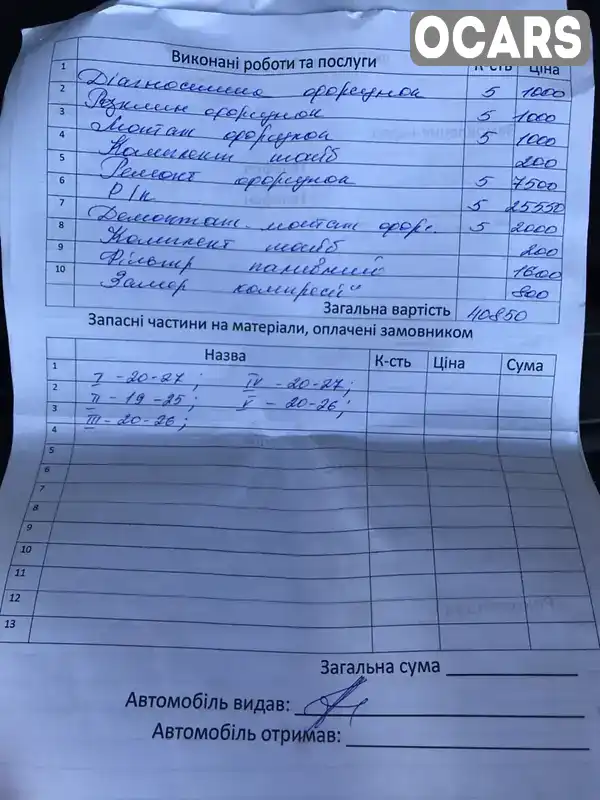 OCARS
Виконані роботи та послуги К-сть Ціна
1 Діагностика форсунок 5 1000
2 Розклин форсунок 5 1000
3 Монтаж форсунок 5 1000
4 Комплект шайб 200
5 Ремонт форсунок 5 7500
6 Р/к 5 25550
7 Демонтаж-монтаж форс. 5 2000
8 Комплект шайб 200
9 Фільтр паливний 1600
10 Замер компресії 800
Загальна вартість 40850
Запасні частини на матеріали, оплачені замовником
Назва К-сть Ціна Сума
1 I - 20-27; IV - 20-27;
2 II - 19-25; V - 20-26;
3 III - 20-26;
4
5
6
7
8
9
10
11
12
13
Загальна сума
Автомобіль видав:
Автомобіль отримав: